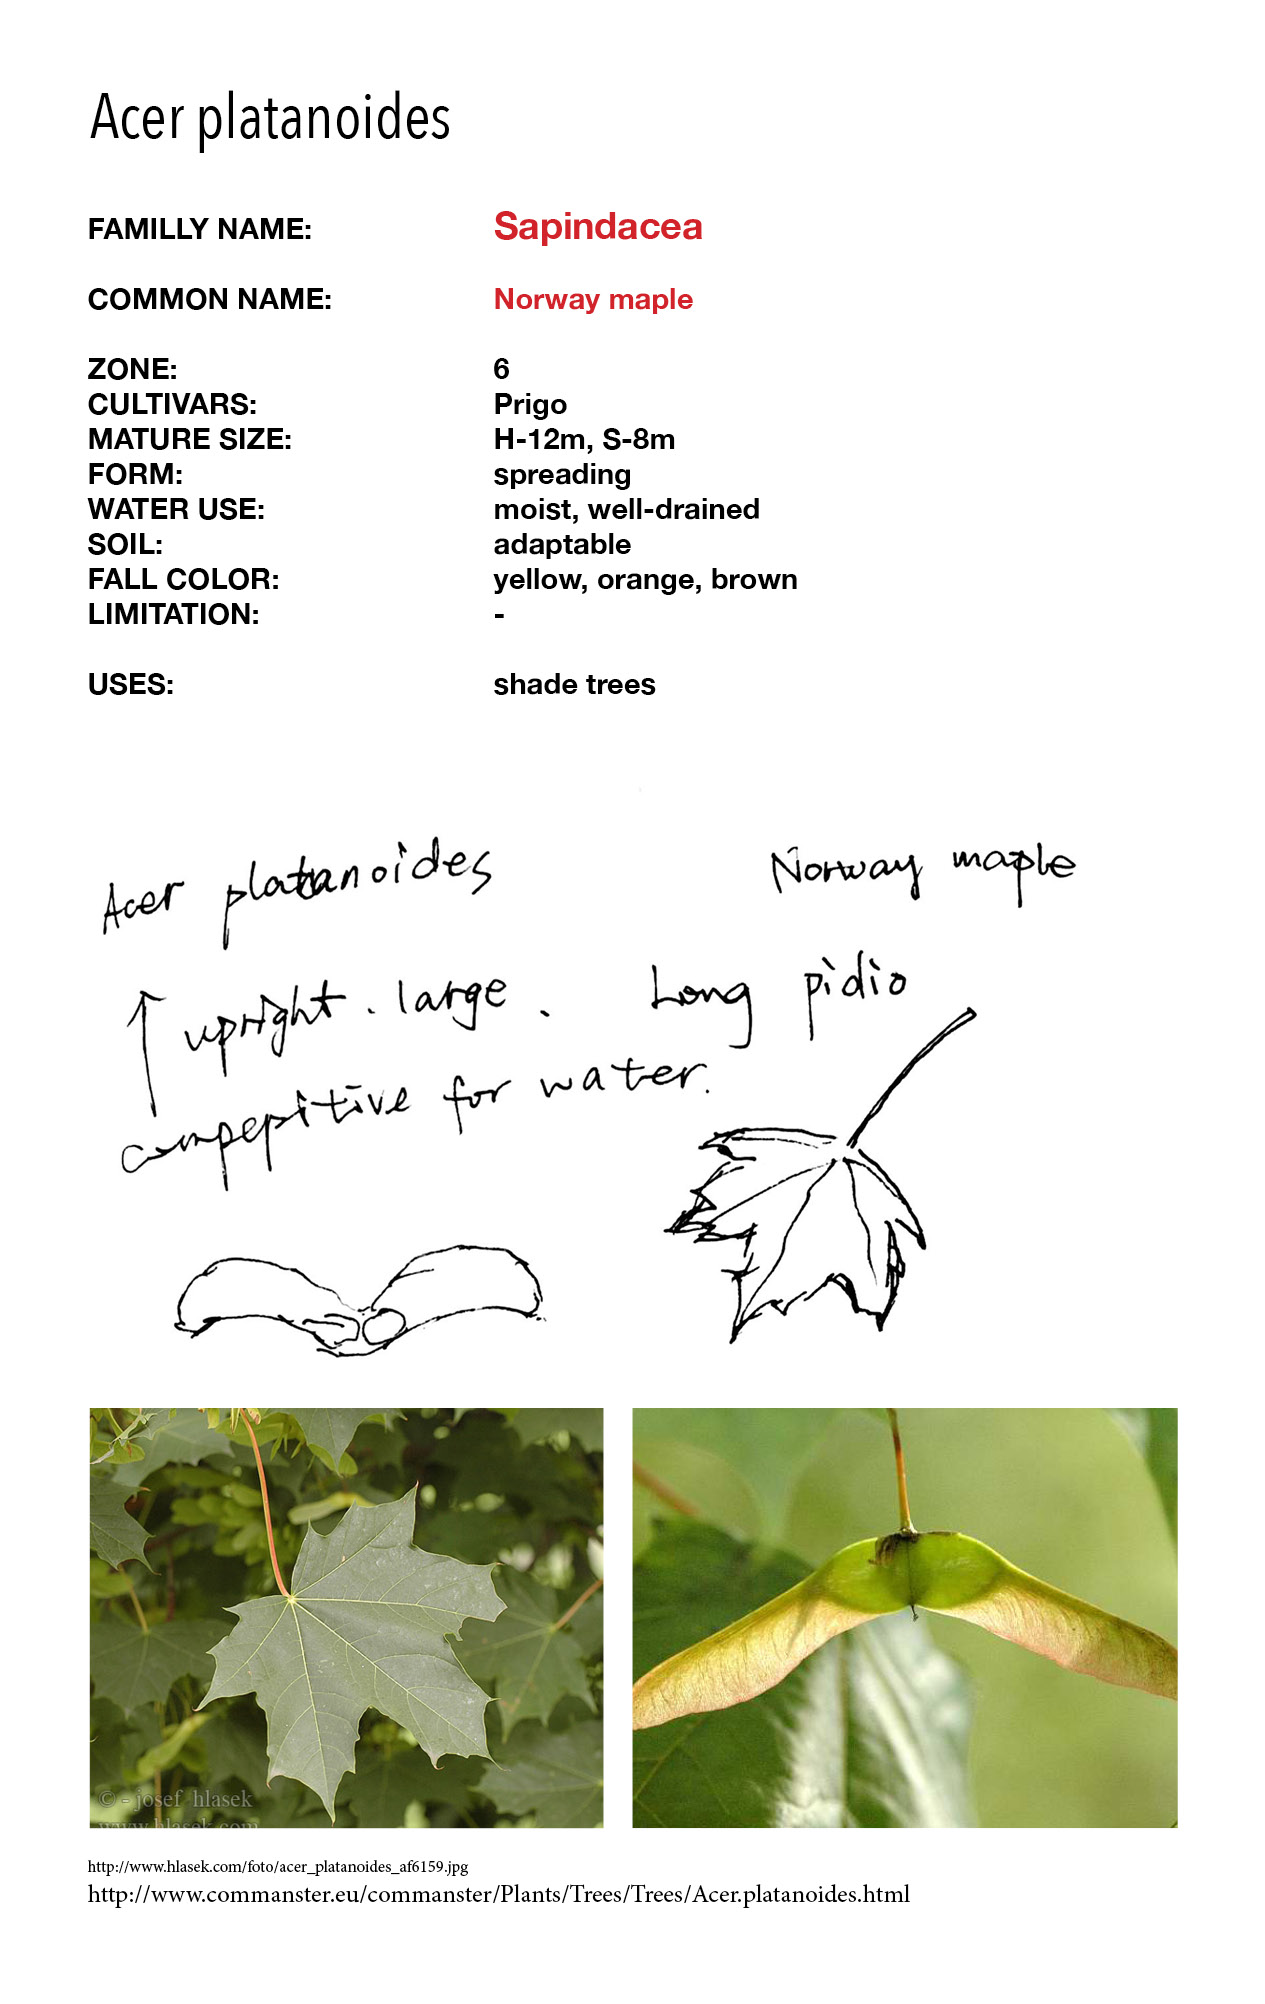 Acer platanoides
FAMILLY NAME: Sapindacea
COMMON NAME: Norway maple
ZONE: 6
CULTIVARS: Prigo
MATURE SIZE: H-12m, S-8m
FORM: spreading
WATER USE: moist, well-drained
SOIL: adaptable
FALL COLOR: yellow, orange, brown
LIMITATION: -
USES: shade trees
Acer platanoides Norway maple
upright. large. Long pidio
compepitive for water.
© - josef hlasek
www.hlasek.com
http://www.hlasek.com/foto/acer_platanoides_af6159.jpg
http://www.commanster.eu/commanster/Plants/Trees/Trees/Acer.platanoides.html